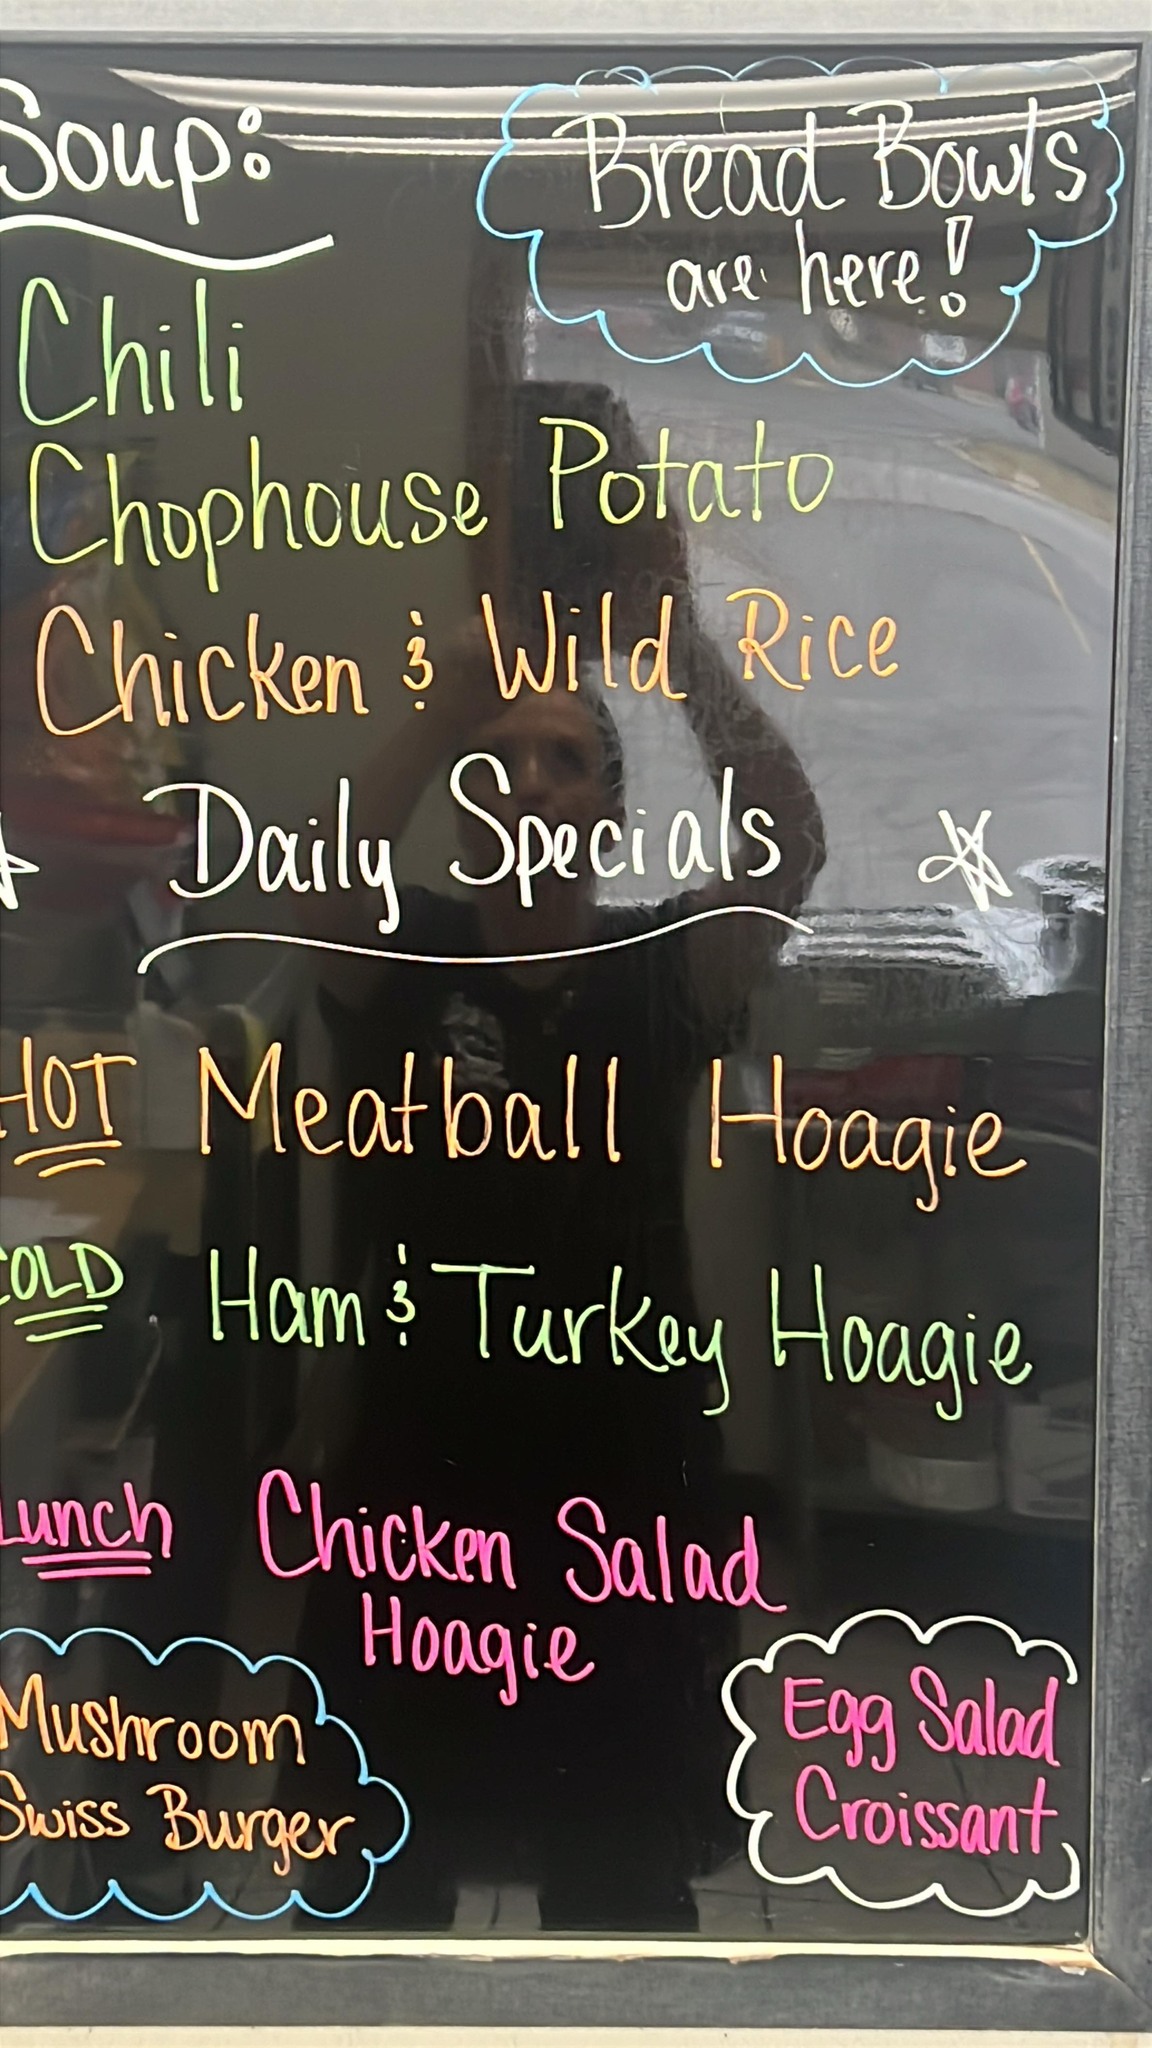 Soup:
Bread Bowls
are here!
Chili
Chophouse Potato
Chicken & Wild Rice
Daily Specials
HOT Meatball Hoagie
COLD Ham & Turkey Hoagie
Lunch Chicken Salad
Hoagie
Mushroom
Swiss Burger
Egg Salad
Croissant